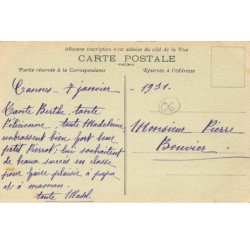 Aucune inscription n'est admise du côté de la Vue
CARTE POSTALE
Partie réservée à la Correspondance
Réservée à l'Adresse
Cannes 7 janvier 1931.
Tante Berthe tante
tante Madeleine
embrassent bien fort leur
petit Pierrot, lui souhaitent
de beaux succès en classe
pour faire plaisir à papa
et à maman.
tante Mad.
06
Monsieur Pierre
Bouvier